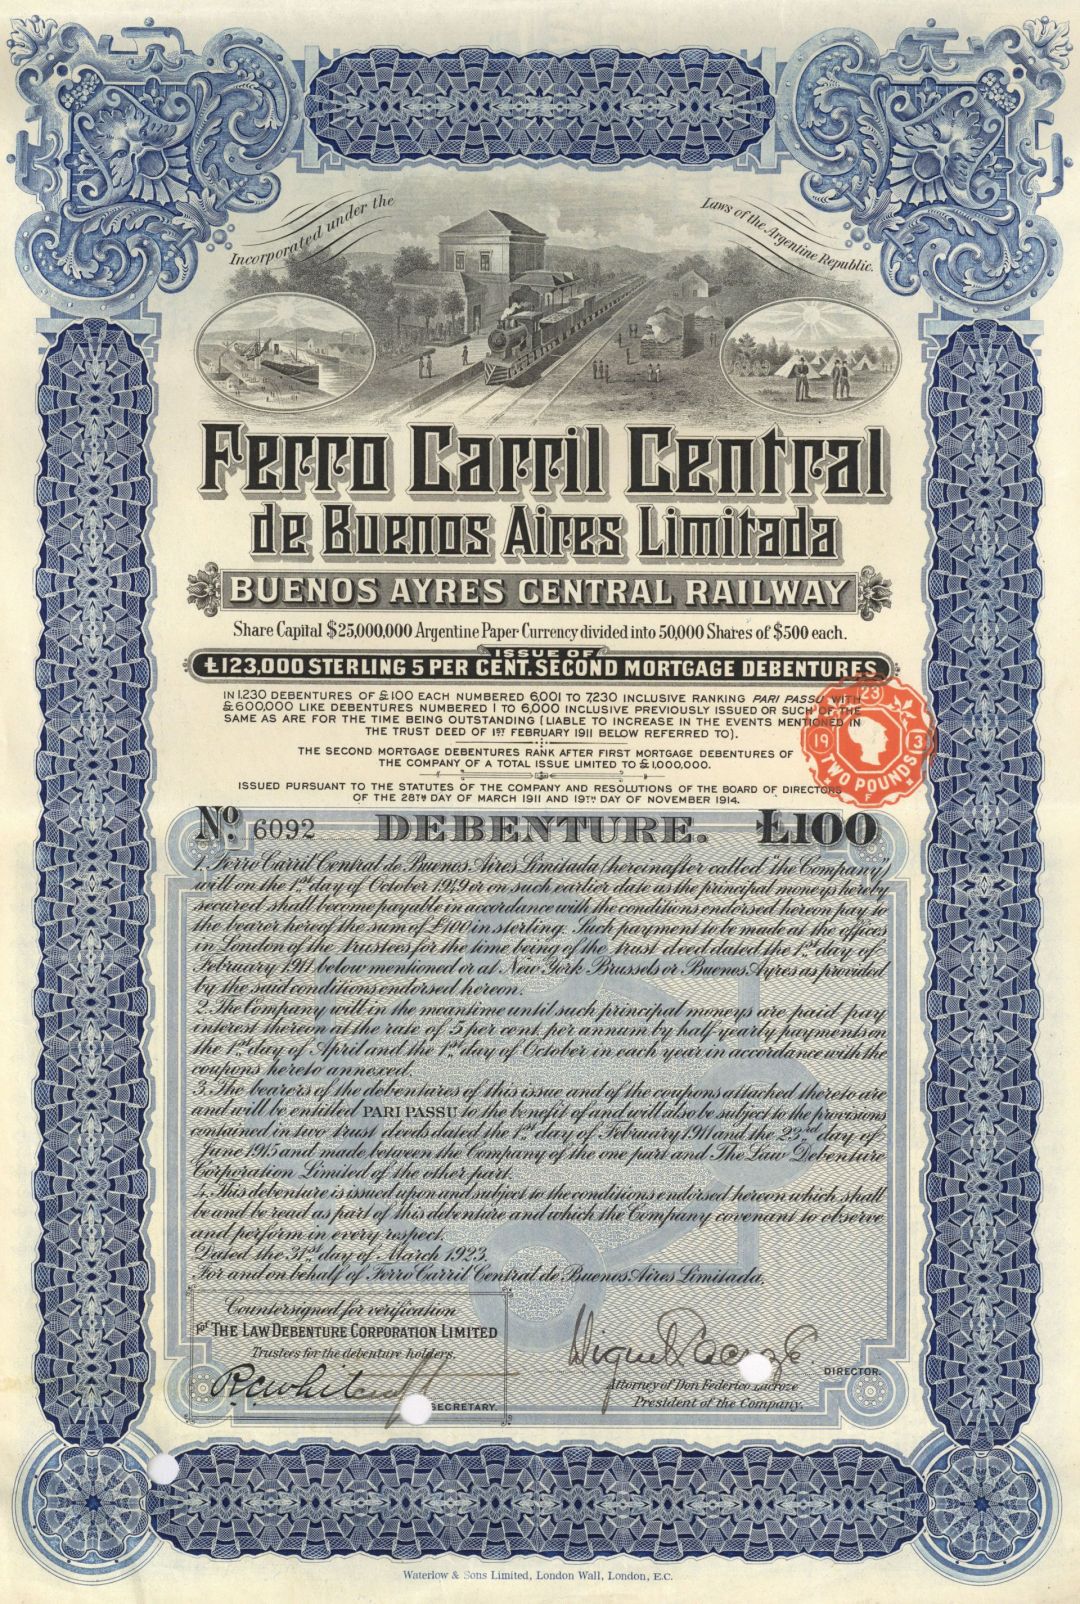 Incorporated under the
Laws of the Argentine Republic.
Ferro Carril Central
de Buenos Aires Limitada
BUENOS AYRES CENTRAL RAILWAY
Share Capital $25,000,000 Argentine Paper Currency divided into 50,000 Shares of $500 each.
ISSUE OF
£123,000 STERLING 5 PER CENT. SECOND MORTGAGE DEBENTURES
IN 1,230 DEBENTURES OF £100 EACH NUMBERED 6,001 TO 7,230 INCLUSIVE RANKING PARI PASSU WITH
£600,000 LIKE DEBENTURES NUMBERED 1 TO 6,000 INCLUSIVE PREVIOUSLY ISSUED OR SUCH OF THE
SAME AS ARE FOR THE TIME BEING OUTSTANDING (LIABLE TO INCREASE IN THE EVENTS MENTIONED IN
THE TRUST DEED OF 1ST FEBRUARY 1911 BELOW REFERRED TO).
23
19 13
TWO POUNDS
F
THE SECOND MORTGAGE DEBENTURES RANK AFTER FIRST MORTGAGE DEBENTURES OF
THE COMPANY OF A TOTAL ISSUE LIMITED TO £1,000,000.
ISSUED PURSUANT TO THE STATUTES OF THE COMPANY AND RESOLUTIONS OF THE BOARD OF DIRECTORS
OF THE 28TH DAY OF MARCH 1911 AND 19TH DAY OF NOVEMBER 1914.
No. 6092 DEBENTURE. £100
1. Ferro Carril Central de Buenos Aires Limitada (hereinafter called "the Company")
will on the 1st day of October 1949 or on such earlier date as the principal moneys hereby
secured shall become payable in accordance with the conditions endorsed hereon pay to
the bearer hereof the sum of £100 in sterling. Such payment to be made at the offices
in London of the trustees for the time being of the trust deed dated the 1st day of
February 1911 below mentioned or at New York Brussels or Buenos Ayres as provided
by the said conditions endorsed hereon.
2. The Company will in the meantime until such principal moneys are paid pay
interest thereon at the rate of 5 per cent. per annum by half-yearly payments on
the 1st day of April and the 1st day of October in each year in accordance with the
coupons hereto annexed.
3. The bearers of the debentures of this issue and of the coupons attached thereto are
and will be entitled PARI PASSU to the benefit of and will also be subject to the provisions
contained in two trust deeds dated the 1st day of February 1911 and the 23rd day of
June 1915 and made between the Company of the one part and The Law Debenture
Corporation Limited of the other part.
4. This debenture is issued upon and subject to the conditions endorsed hereon which shall
be and be read as part of this debenture and which the Company covenant to observe
and perform in every respect.
Dated the 31st day of March 1923.
For and on behalf of Ferro Carril Central de Buenos Aires Limitada,
Countersigned for verification
For THE LAW DEBENTURE CORPORATION LIMITED
Trustees for the debenture holders.
SECRETARY.
Miguel Lacroze
DIRECTOR.
Attorney of Don Federico Lacroze
President of the Company.
Waterlow & Sons Limited, London Wall, London, E.C.